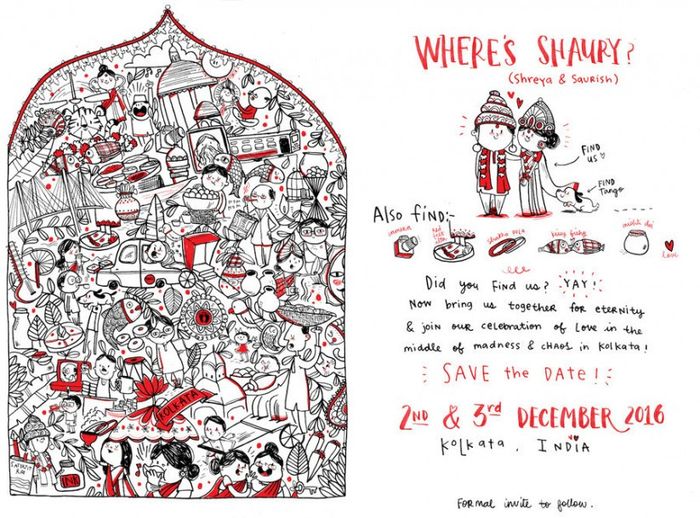 WHERE'S SHAURY?
(SHREYA & SAURISH)
FIND
US
FIND
Tango
Also find:-
shakha pola
kissy fishy
mishti doi
love
Did you find us? YAY!
Now bring us together for eternity
& join our celebration of love in the
middle of madness & chaos in Kolkata!
SAVE the DATE!
2ND & 3rd DECEMBER 2016
Kolkata, INDIA
Formal invite to follow.
KOLKATA
INK